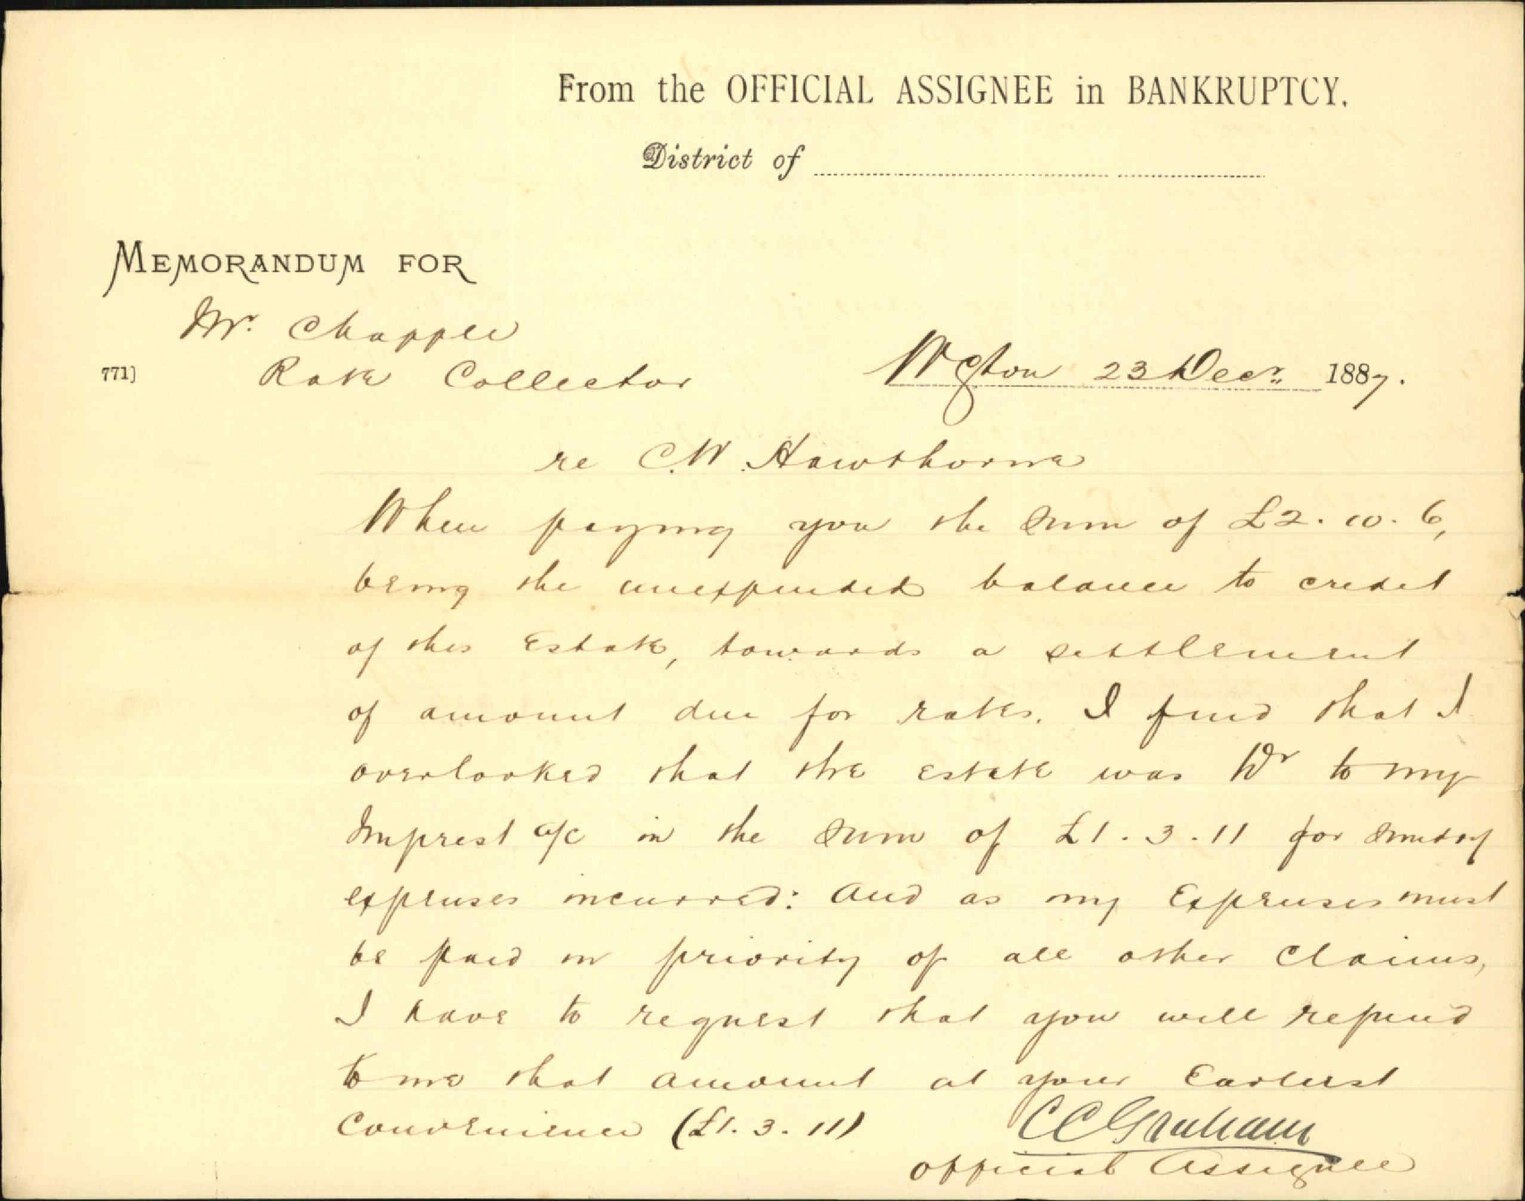 From the OFFICIAL ASSIGNEE in BANKRUPTCY.
District of
MEMORANDUM FOR
Mr. Chapple
771] Rate Collector
Wgton 23 Decr. 1887.
re C.W. Hawthorne
When paying you the sum of £2.10.6,
being the unexpended balance to credit
of this Estate, towards a settlement
of amount due for rates. I find that I
overlooked that the estate was Dr to my
Imprest a/c in the sum of £1.3.11 for sundry
expenses incurred: and as my Expenses must
be paid in priority of all other claims,
I have to request that you will refund
to me that amount at your Earliest
convenience (£1.3.11)
CCGraham
Official Assignee